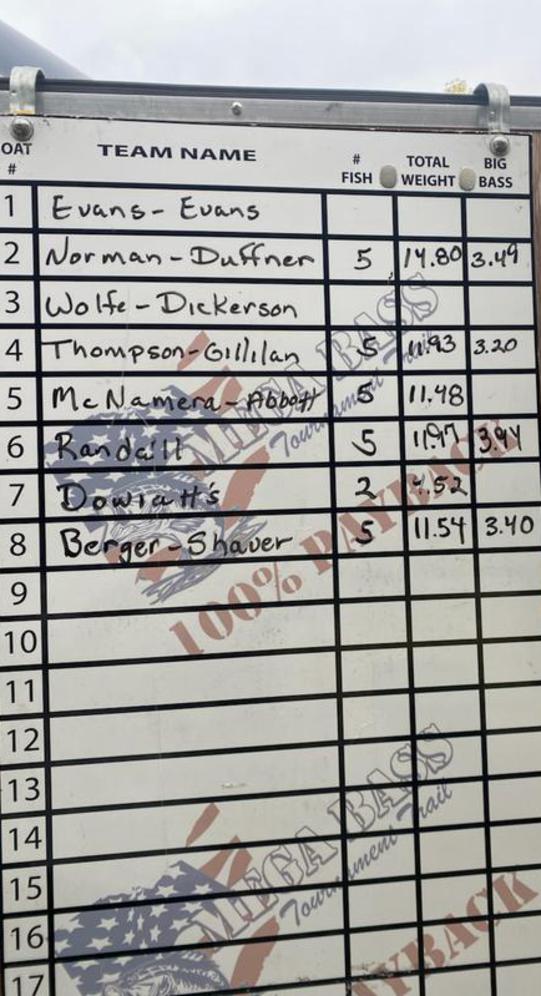 OAT # TEAM NAME # FISH TOTAL WEIGHT BIG BASS
1 Evans- Evans
2 Norman-Duffner 5 14.80 3.49
3 Wolfe-Dickerson
4 Thompson-Gillilan 5 11.93 3.20
5 McNamera-Abbott 5 11.48
6 Randall 5 11.97 3.94
7 Dowiatt's 2 4.52
8 Berger-Shaver 5 11.54 3.40
9
10
11
12
13
14
15
16
17
MEGA BASS
Tournament Trail
100% PAYBACK
MEGA BASS
Tournament Trail
PAYBACK